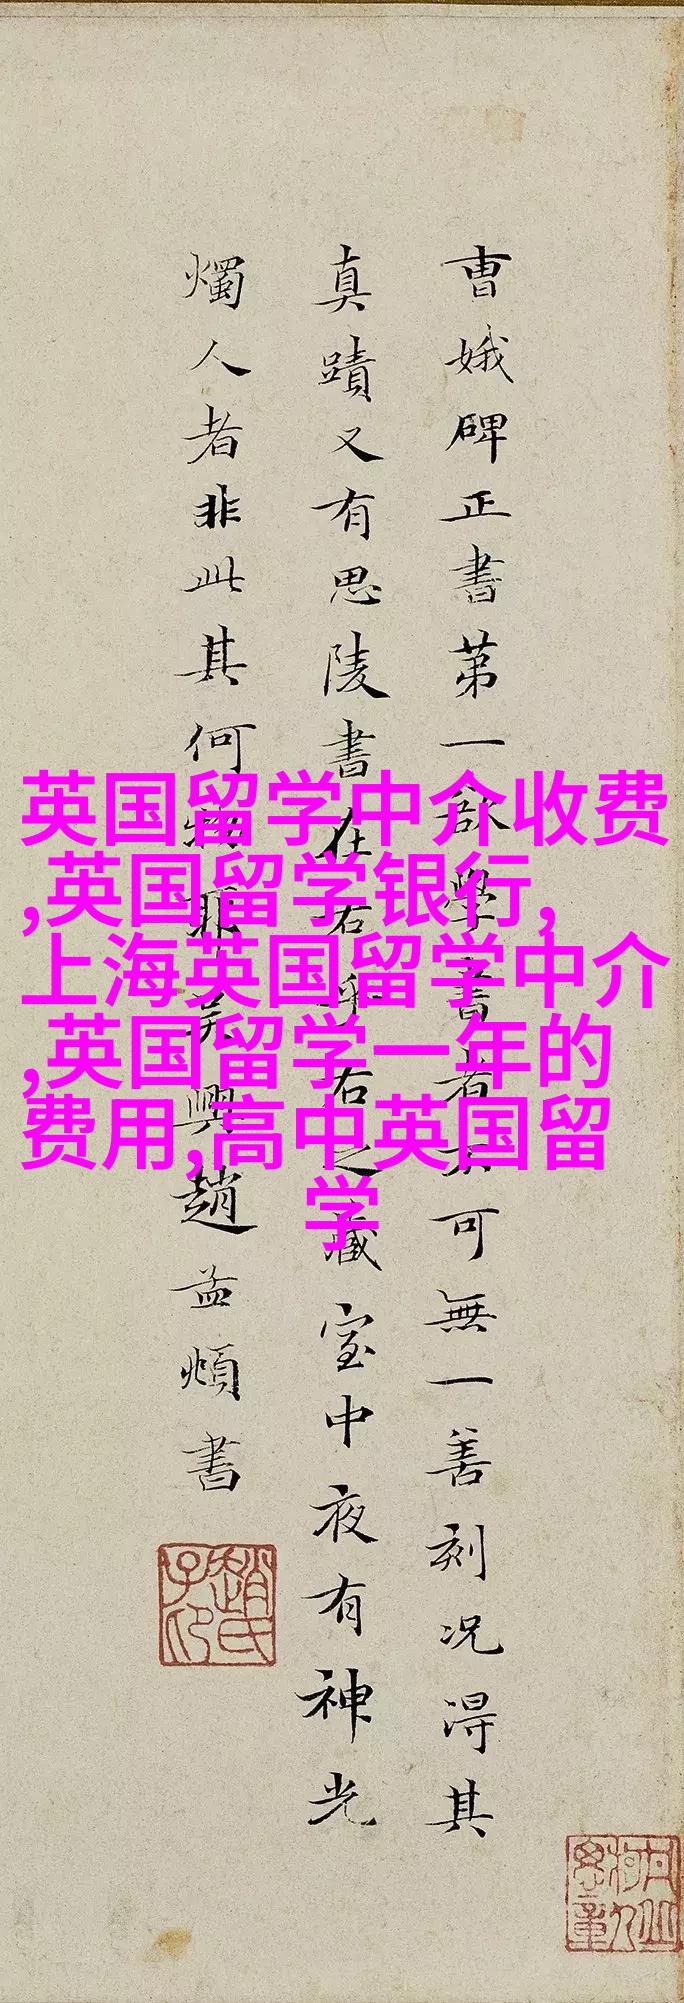 曹娥碑正書第一欲學書者不可無一善刻况得其
真蹟又有思陵書在右乎右之藏室中夜有神光
燭人者非此其何物耶吴興趙孟頫書
趙氏子印
英国留学中介收费
,英国留学银行,
上海英国留学中介
,英国留学一年的
费用,高中英国留
学